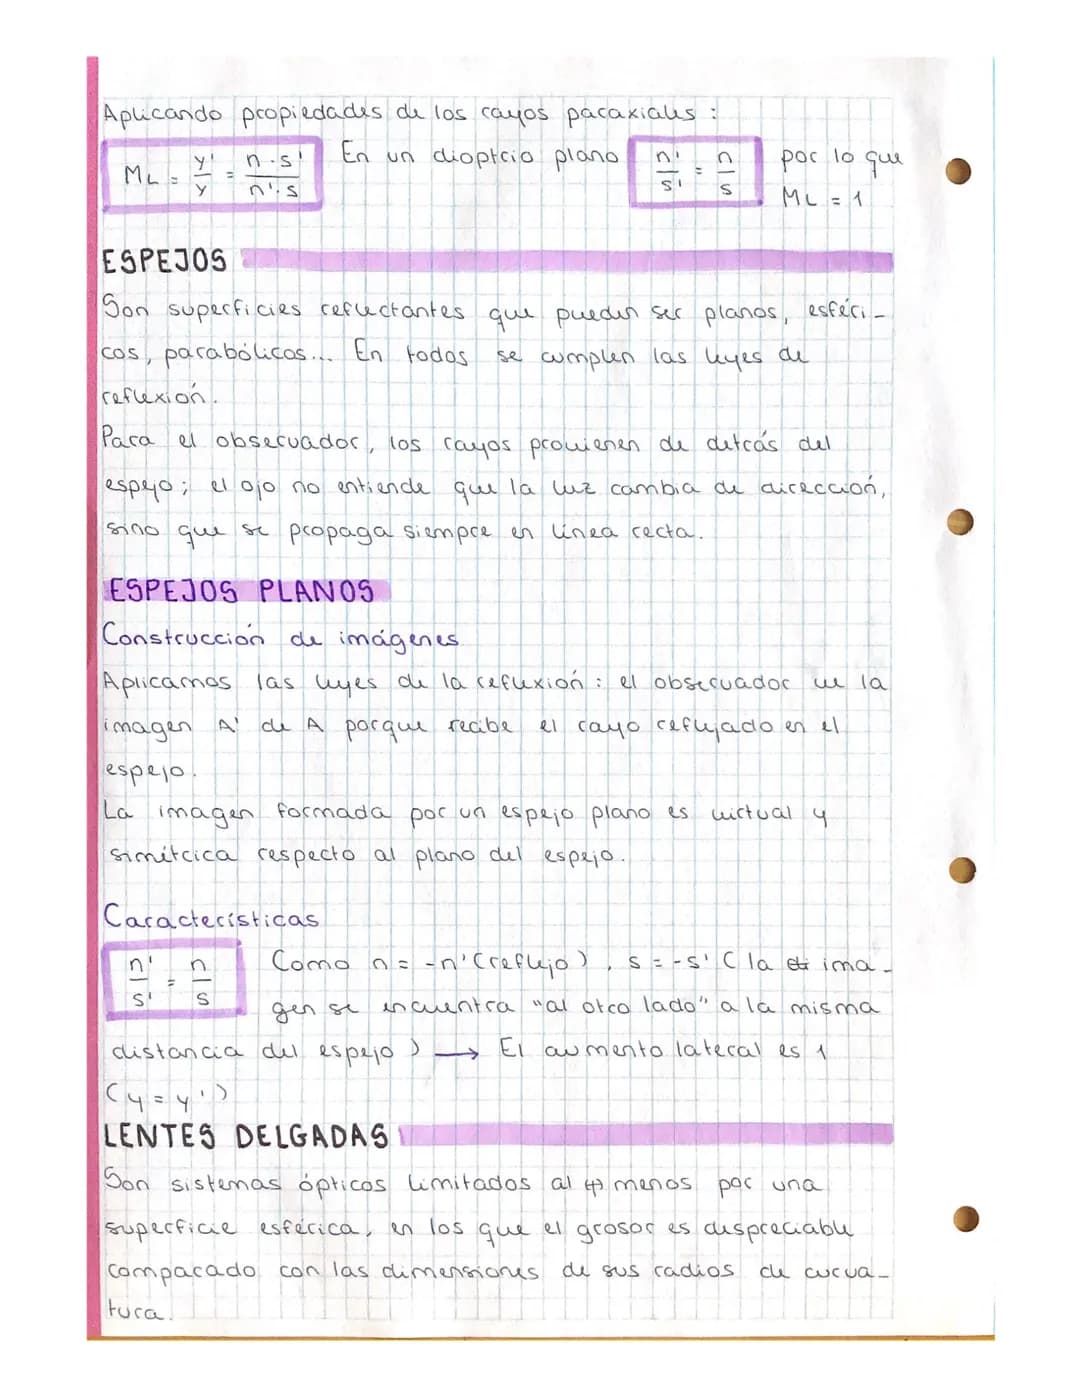 Aplicando propiedades de los rayos paraxiales:
ML = y'/y = n·s'/n'·s En un dioptrio plano n'/s' = n/s por lo que
ML = 1
ESPEJOS
Son superficies reflectantes que pueden ser planos, esféri-
cos, parabólicos... En todos se cumplen las leyes de
reflexión.
Para el observador, los rayos provienen de detrás del
espejo; el ojo no entiende que la luz cambia de dirección,
sino que se propaga siempre en línea recta.
ESPEJOS PLANOS
Construcción de imágenes
Aplicamos las leyes de la reflexión: el observador ve la
imagen A' de A porque recibe el rayo reflejado en el
espejo.
La imagen formada por un espejo plano es virtual y
simétrica respecto al plano del espejo.
Características
n'/s' = n/s Como n = -n' (reflejo), s = -s' (la ima-
gen se encuentra "al otro lado" a la misma
distancia del espejo) → El aumento lateral es 1
(y = y')
LENTES DELGADAS
Son sistemas ópticos limitados al menos por una
superficie esférica, en los que el grosor es despreciable
comparado con las dimensiones de sus radios de curva-
tura.